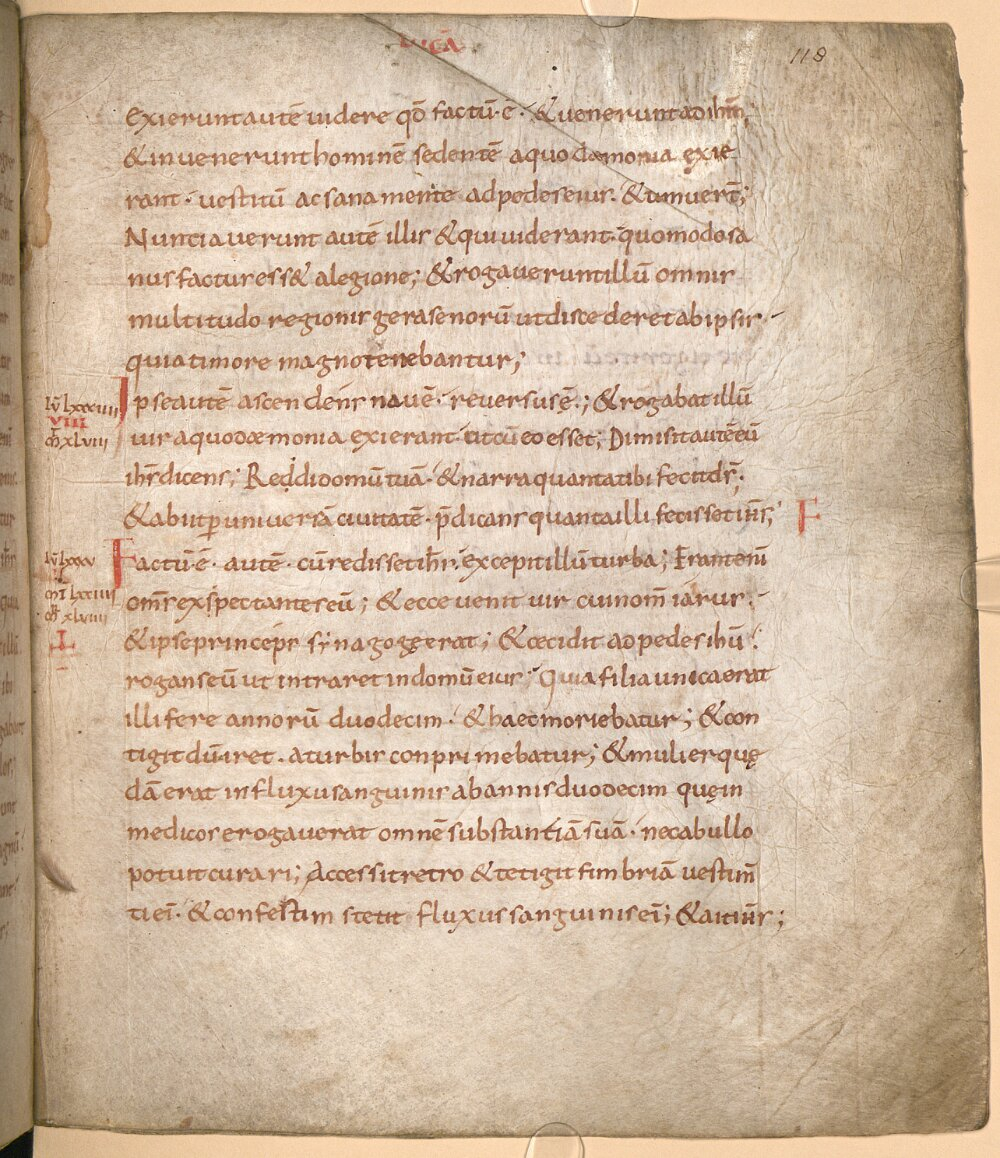 LUCĀ
118
Exierunt autē uidere qđ factū·ē· & uenerunt ad ihm̄;
& inuenerunt hominē sedentē a quo dæmonia exie
rant· uestitū ac sana mente ad pedes eius· & timuerт̄;
Nuntiauerunt autē illis & qui uiderant· quomodo sa
nus factus ess& a legione; & rogauerunt illū omnis
multitudo regionis gerasenorū ut discederet ab ipsis·
quia timore magno tenebantur;
Ipse autē ascendens nauē· reuersus ē·; & rogabat illū
uir a quo dæmonia exierant· ut cū eo esset; Dimisit autē eū
ihs̄ dicens; Reddi domū tuā· & narra quanta tibi fecit ds̄·
& abiit p uniuersā ciuitatē· p̄dicans quanta illi fecisset ihs̄;
F
Factū·ē· autē· cū redisset ihs̄· excepit illū turba; Erant enī
oms̄ exspectantes eū; & ecce uenit uir cui nom̄ iairus·
& ipse princeps synagogę erat; & cecidit ad pedes ihū·
rogans eū ut intraret in domū eius· Quia filia unica erat
illi fere annorū duodecim· & haec moriebatur; & con
tigit dū iret· a turbis conprimebatur; & mulier quę
dā erat in fluxu sanguinis ab annis duodecim quę in
medicos erogauerat omnē substantiā suā· nec ab ullo
potuit curari; Accessit retro & tetigit fimbriā uestim̄
ti ei· & confestim stetit fluxus sanguinis ei; & ait ihs̄;
VIII
mr̄ xlviii
lū lxxxv